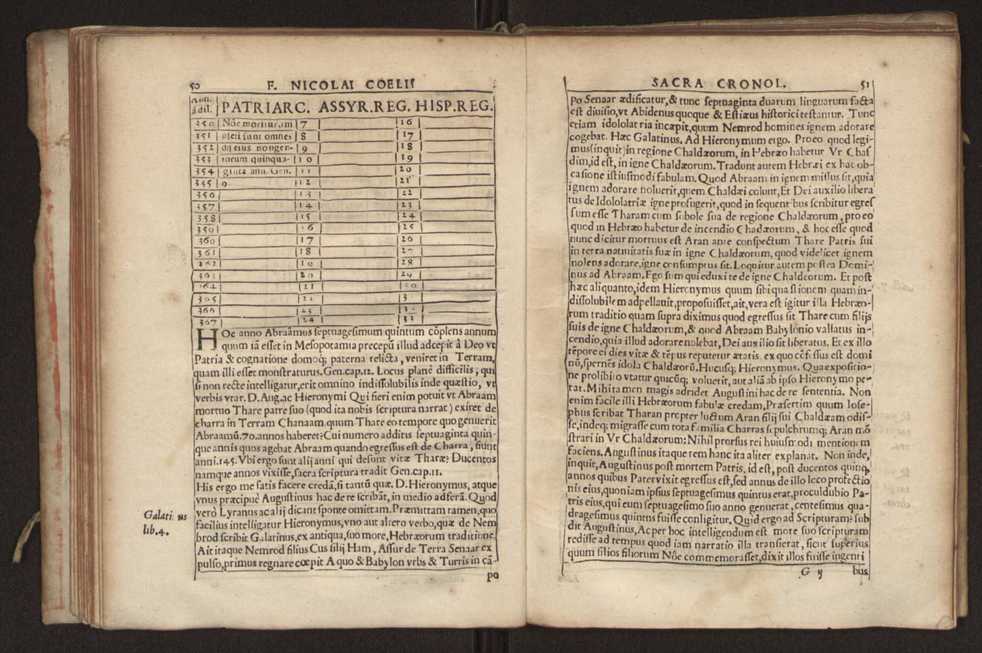 50 F. NICOLAI COELII
PATRIARC. ASSYR.REG. HISP.REG.
350 | Nöe mortuus | 7 | 16
351 | omnes | 8 | 17
352 | dij eius nongen- | 9 | 18
353 | torum quinqua- | 10 | 19
354 | ginta ann. Gen. | 11 | 20
355 | 9. | 12 | 21
356 | 13 | 22
357 | 14 | 23
358 | 15 | 24
359 | 16 | 25
360 | 17 | 26
361 | 18 | 27
362 | 19 | 28
363 | 20 | 29
364 | 21 | 30
365 | 22 | 31
366 | 23
367 | 24 | 32
HOc anno Abraâmus septuagesimum quintum cõplens annum
quum iã esset in Mesopotamia precepũ illud adcepit â Deo vt
Patria & cognatione domoq; paterna relicta, veniret in Terram,
quam illi esset monstraturus. Gen.cap.12. Locus planè difficilis, qui
si non recte intelligatur, erit omnino indissolubilis inde quæstio, vt
verbis vtar. D. Aug. ac Hieronymi Qui fieri enim potuit vt Abraam
mortuo Thare patre suo (quod ita nobis scriptura narrat) exiret de
charra in Terram Chanaam. quum Thare eo tempore quo genuerit
Abraamũ. 70. annos haberet: Cui numero additus septuaginta quin-
que annis quos agebat Abraam quando egressus est de Charra, fiunt
anni. 145. Vbi ergo sunt alij anni qui desunt vitæ Tharæ? Ducentos
namque annos vixisse, sacra scriptura tradit Gen.cap.11.
His ergo me satis facere credã, si tantũ quæ. D. Hieronymus, atque
vnus præcipuè Augustinus hac de re scribãt, in medio adferã. Quod
verò Lyranus ac alij dicant sponte omittam. Præmuttam tamen, quo
facilius intelligatur Hieronymus, vno aut altero verbo, quæ de Nem
brod scribit Galatinus, ex antiqua, suo more, Hebræorum traditione.
Galatinus
lib. 4.
Ait itaque Nemrod filius Cus filij Ham, Assur de Terra Senaar ex
pulso, primus regnare cœpit A quo & Babylon vrbs & Turris in cã-
po
SACRA CRONOL. 51
po Senaar ædificatur, & tunc septuaginta duarum linguarum facta
est diuisio, vt Abidenus quoque & Estiæus historici testantur. Tunc
etiam idololatria incæpit, quum Nemrod homines ignem adorare
cogebat. Hæc Galatinus. Ad Hieronymum ergo. Pro eo quod legi-
mus (inquit) in regione Chaldæorum, in Hebræo habetur Vr Chas
dim, id est, in igne Chaldæorum. Tradunt autem Hebræi ex hac ob-
casione istiusmodi fabulam. Quod Abraam in ignem missus sit, quia
ignem adorare noluerit, quem Chaldæi colunt, Et Dei auxilio libera
tus de Idololatriæ igne profugerit, quod in sequentibus scribitur egres
sum esse Tharam cum sobole sua de regione Chaldæorum, pro eo
quod in Hebræo habetur de incendio Chadæorum, & hoc esse quod
nunc dicitur mortuus est Aran ante conspectum Thare Patris sui
in terra natiuitatis suæ in igne Chaldæorum, quod videlicet ignem
nolens adorare, igne consumptus sit. Loquitur autem postea Domi-
nus ad Abraam, Ego sum qui eduxi te de igne Chaldæorum. Et post
hæc aliquanto, idem Hieronymus quum sibi quæstionem quam in-
dissolubilem adpellauit, proposuisset, ait, vera est igitur illa Hebræo-
rum traditio quam supra diximus quod egressus sit Thare cum filijs
suis de igne Chaldæorum, & quod Abraam Babylonio vallatus in-
cendio, quia illud adorare nolebat, Dei auxilio sit liberatus. Et ex illo
tẽpore ei dies vitæ & tẽpus reputetur ætatis. ex quo cõfessus est domi
nũ, spernẽs idola Chaldæorũ. Hucusq; Hieronymus. Qua expositio-
ne prohibito vtatur quicũq; voluerit, aut aliã ab ipso Hieronymo pe-
tat. Mihi tamen magis adridet Augustini hac de re sententia. Non
enim facile illi Hebræorum fabulæ credam, Præsertim quum Iose-
phus scribat Tharan propter luctum Aran filij sui Chaldæam odis-
se, indeq; migrasse cum tota familia Charras sepulchrumq; Aran mõ
strari in Vr Chaldæorum: Nihil prorsus rei huiusmodi mentionem
faciens. Augustinus itaque rem hanc ita aliter explanat. Non inde,
inquit, Augustinus post mortem Patris, id est, post ducentos quinq;
annos quibus Pater vixit egressus est, sed annus de illo loco profectio
nis eius, quoniam ipsius septuagesimus quintus erat, proculdubio Pa-
tris eius, qui eum septuagesimo suo anno genuerat, centesimus qua-
dragesimus quintus fuisse conligitur. Quid ergo ad Scripturam? sub
dit Augustinus, Ac per hoc intelligendum est more suo scripturam
redisse ad tempus quod iam narratio illa transierat, sicut superius
quum filios filiorum Nôe commemorasset, dixit illos fuisse in genti
G ij bus